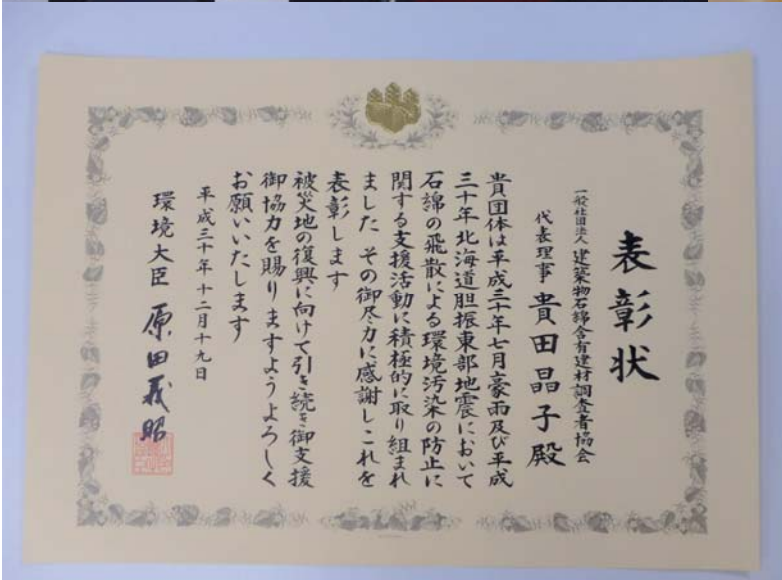 表彰状
一般社団法人 建築物石綿含有建材調査者協会
代表理事 貴田晶子殿
貴団体は平成三十年七月豪雨及び平成
三十年北海道胆振東部地震において
石綿の飛散による環境汚染の防止に
関する支援活動に積極的に取り組まれ
ました その御尽力に感謝しこれを
表彰します
被災地の復興に向けて引き続き御支援
御協力を賜りますようよろしく
お願いいたします
平成三十年十二月十九日
環境大臣 原田義昭